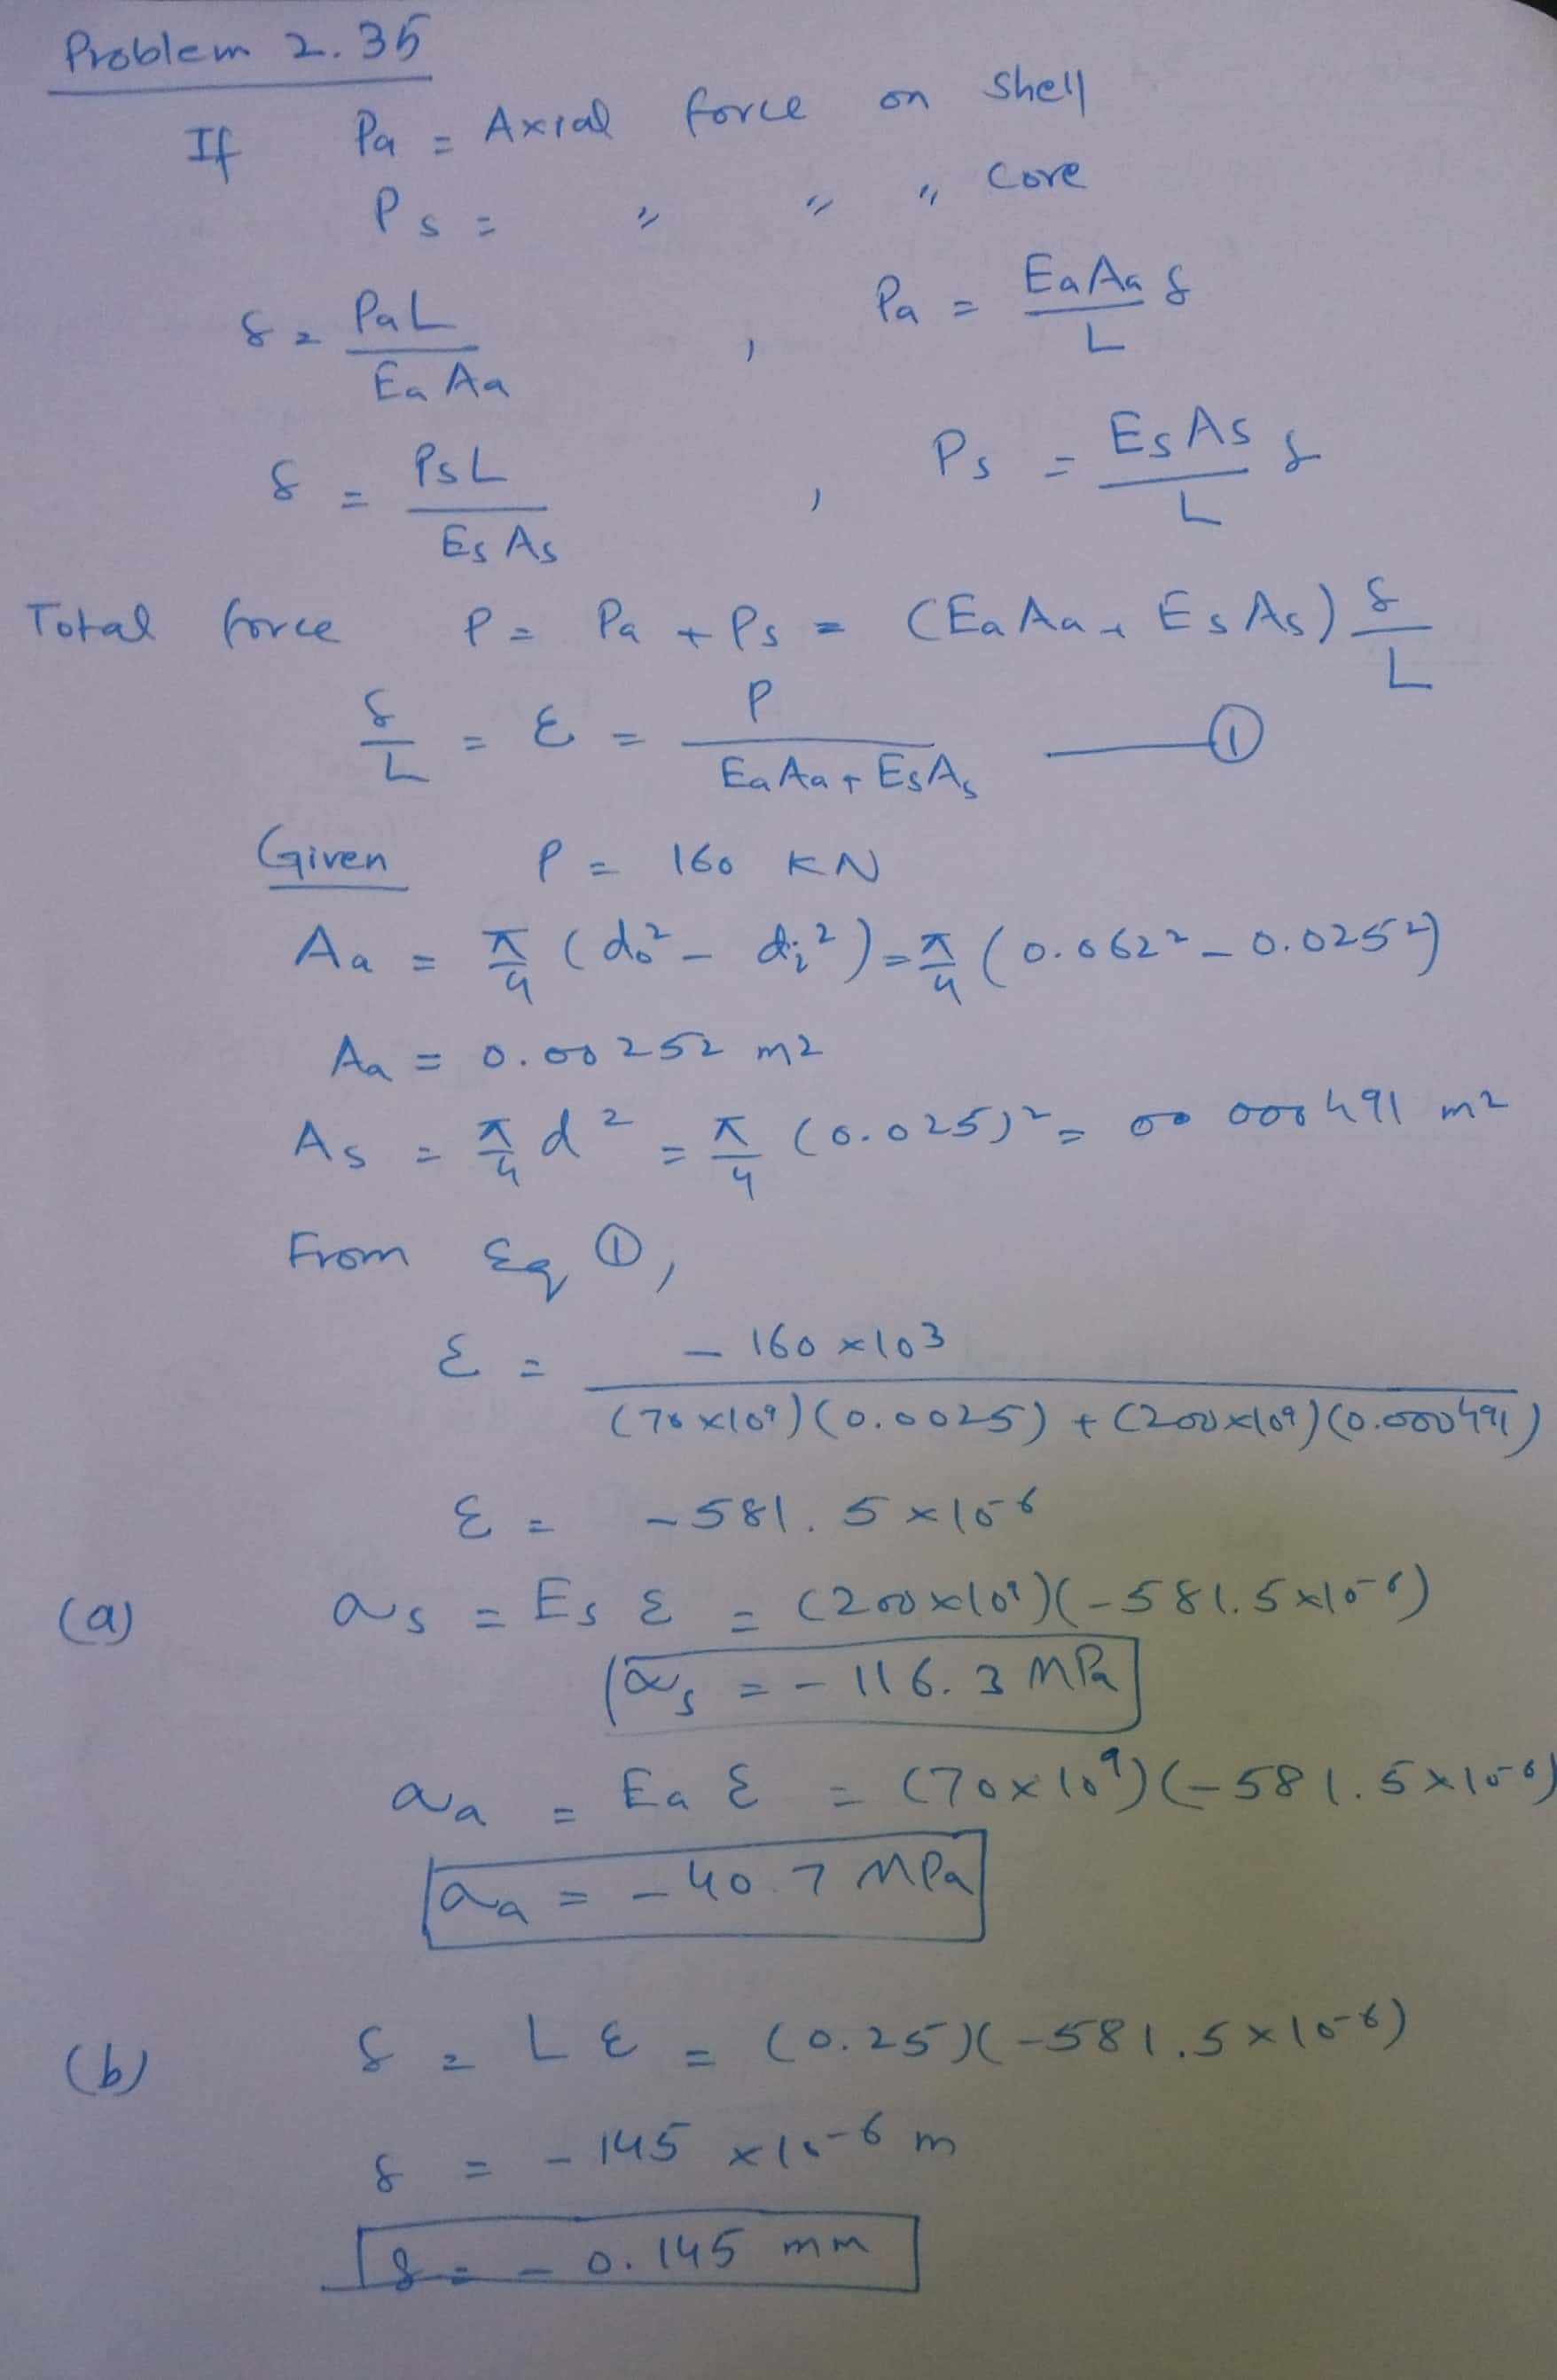 Problem 2.35
If Pa = Axial force on shell
Ps = " " " core
δ = PaL / Ea Aa , Pa = Ea Aa δ / L
δ = PsL / Es As , Ps = Es As / L δ
Total force P = Pa + Ps = (Ea Aa + Es As) δ / L
δ / L = ε = P / Ea Aa + Es As — ①
Given P = 160 KN
Aa = π/4 (do² - di²) = π/4 (0.062² - 0.025²)
Aa = 0.00252 m2
As = π/4 d² = π/4 (0.025)² = 0.000491 m2
From Eq ①,
ε = - 160 × 10³ / (70×10⁹)(0.0025) + (200×10⁹)(0.000491)
ε = - 581.5 × 10⁻⁶
(a) σs = Es ε = (200×10⁹)(-581.5×10⁻⁶)
σs = - 116.3 MPa
σa = Ea ε = (70×10⁹)(-581.5×10⁻⁶)
σa = - 40.7 MPa
(b) δ = L ε = (0.25)(-581.5×10⁻⁶)
δ = - 145 × 10⁻⁶ m
δ = - 0.145 mm